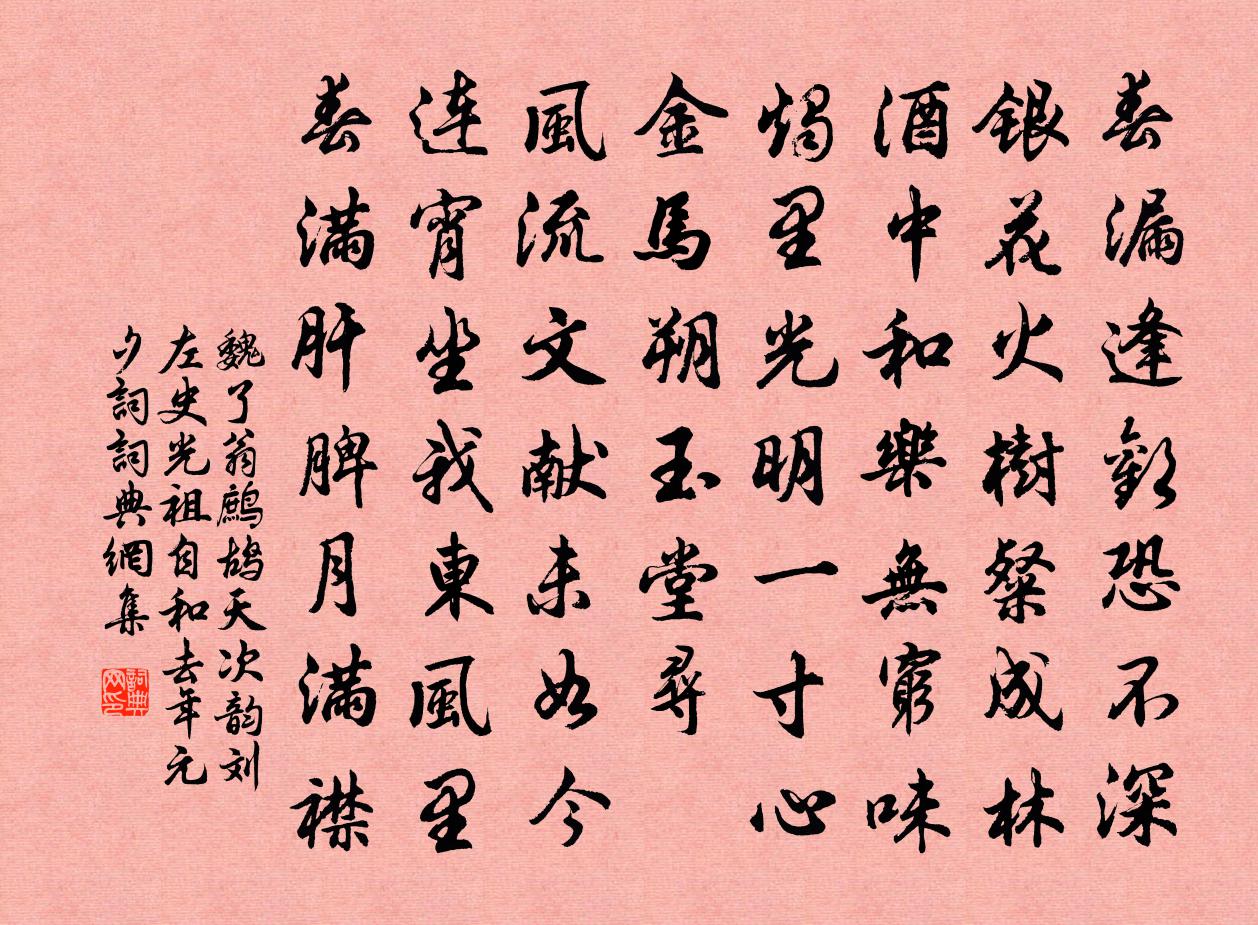 春漏逢歡恐不深
銀花火樹粲成林
酒中和樂無窮味
燭里光明一寸心
金馬朔玉堂尋
風流文献未如今
連宵坐我東風里
春滿肝脾月滿襟
魏了翁鷓鴣天次韵刘
左史光祖自和去年元
夕詞詞典網集
詞典网印